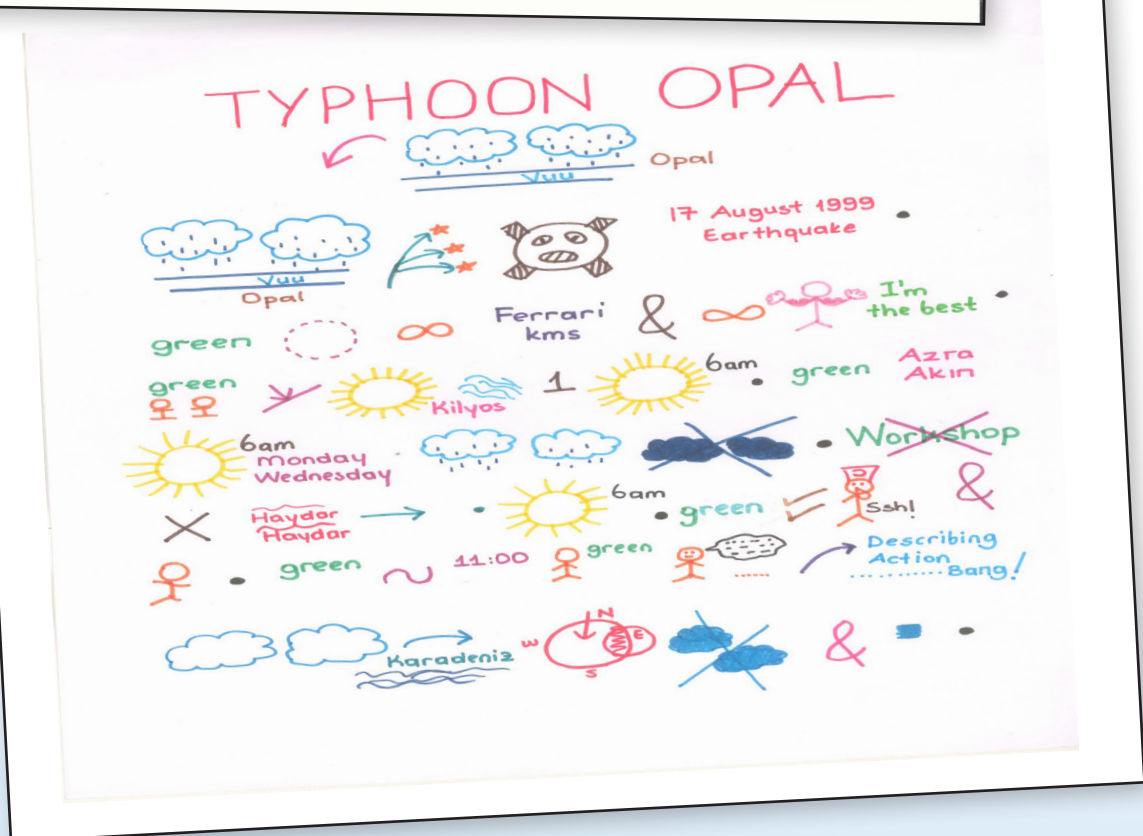 TYPHOON OPAL
Vuu
Opal
Vuu
Opal
17 August 1999
Earthquake
green
Ferrari
kms
&
I'm
the best
green
Kilyos
1
6am
green
Azra
Akın
6am
Monday
Wednesday
Workshop
Haydar
Haydar
6am
green
Ssh!
&
green
11:00
green
Describing
Action
.......... Bang!
Karadeniz
N
W
E
S
&